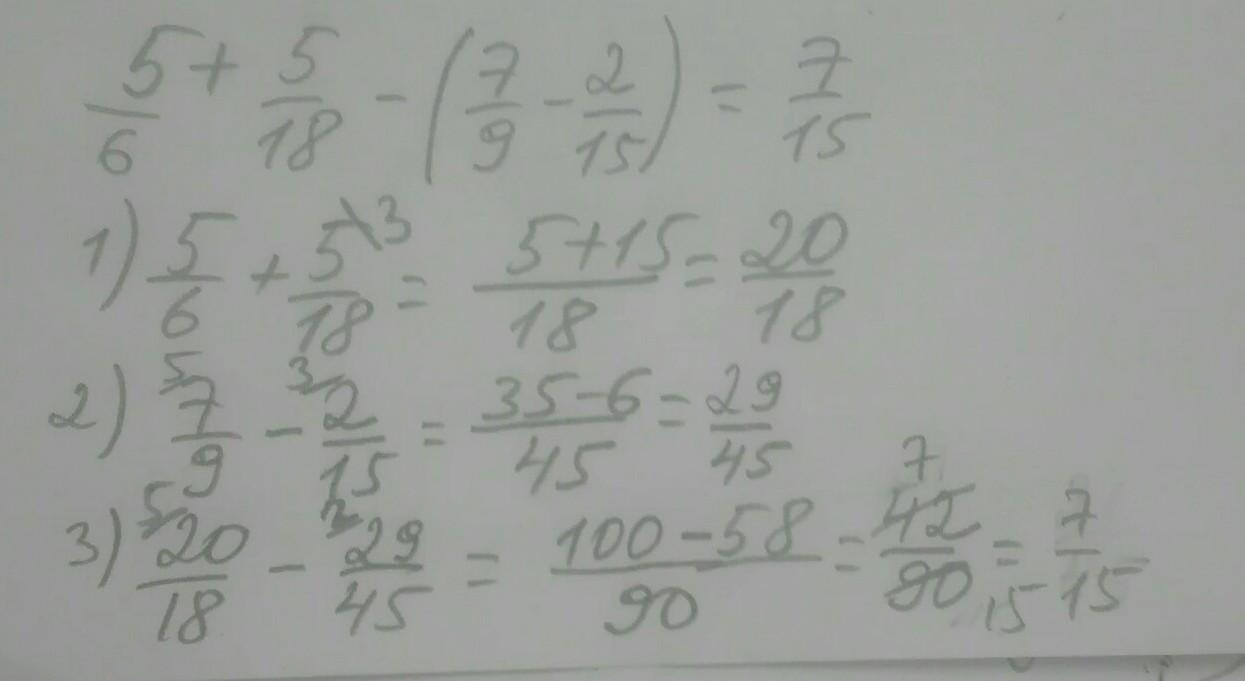 5/6 + 5/18 - (7/9 - 2/15) = 7/15
1) 5/6 + 5\3/18 = 5+15/18 = 20/18
2) 5/7/9 - 3/2/15 = 35-6/45 = 29/45
3) 5/20/18 - 2/29/45 = 100-58/90 = 42 7/90 15 = 7/15